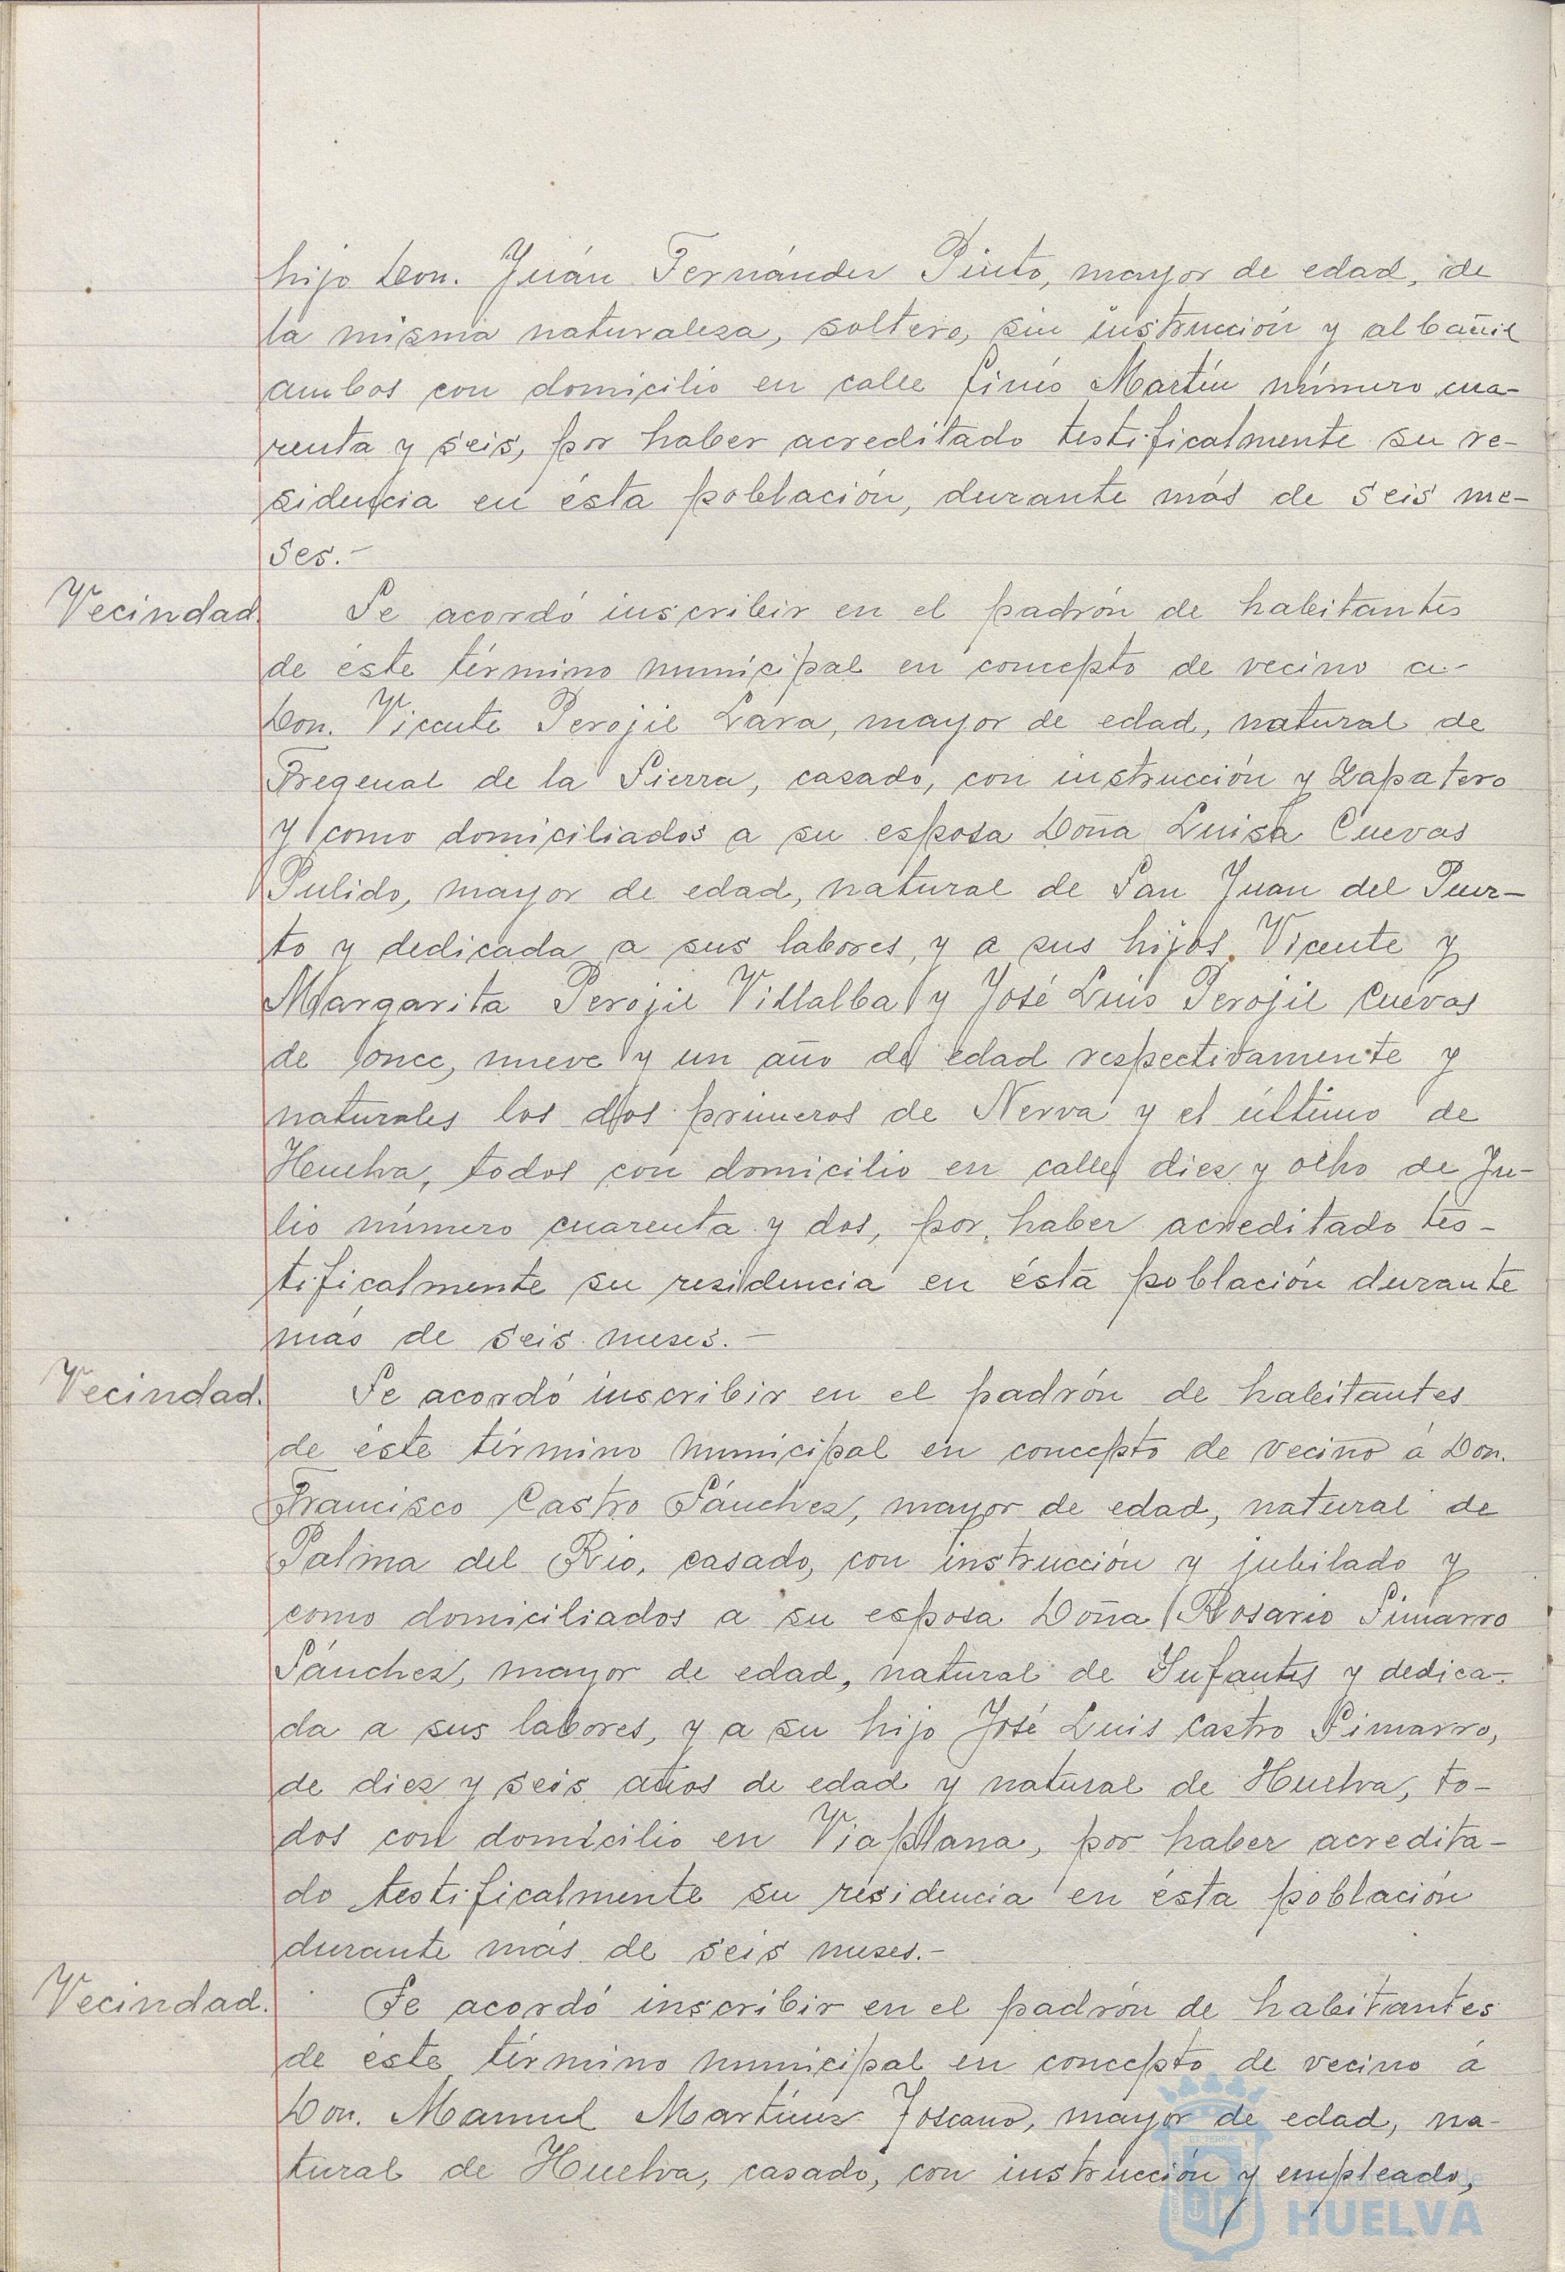 hijo Don. Juán Fernández Pinto, mayor de edad, de
la misma naturaleza, soltero, sin instrucción y albañil
ambos con domicilio en calle Ginés Martín número cua-
renta y seis, por haber acreditado testificalmente su re-
sidencia en ésta población, durante más de seis me-
ses.-
Vecindad. Se acordó inscribir en el padrón de habitantes
de éste término municipal en concepto de vecino a-
Don. Vicente Perojil Lara, mayor de edad, natural de
Fregenal de la Sierra, casado, con instrucción y Zapatero
y como domiciliados a su esposa Doña Luisa Cuevas
Pulido, mayor de edad, natural de San Juan del Puer-
to y dedicada a sus labores, y a sus hijos Vicente y
Margarita Perojil Villalba y José Luis Perojil Cuevas
de once, nueve y un año de edad respectivamente y
naturales los dos primeros de Nerva y el último de
Huelva, todos con domicilio en calle diez y ocho de Ju-
lio número cuarenta y dos, por haber acreditado tes-
tificalmente su residencia en ésta población durante
más de seis meses.-
Vecindad. Se acordó inscribir en el padrón de habitantes
de éste término municipal en concepto de vecino á Don.
Francisco Castro Sánchez, mayor de edad, natural de
Palma del Rio, casado, con instrucción y jubilado y
como domiciliados a su esposa Doña Rosario Simarro
Sánchez, mayor de edad, natural de Infantes y dedica-
da a sus labores, y a su hijo José Luis Castro Simarro,
de diez y seis años de edad y natural de Huelva, to-
dos con domicilio en Viaplana, por haber acredita-
do testificalmente su residencia en ésta población
durante más de seis meses.-
Vecindad. Se acordó inscribir en el padrón de habitantes
de éste término municipal en concepto de vecino á
Don. Manuel Martínez Toscano, mayor de edad, na-
tural de Huelva, casado, con instrucción y empleado,
HUELVA